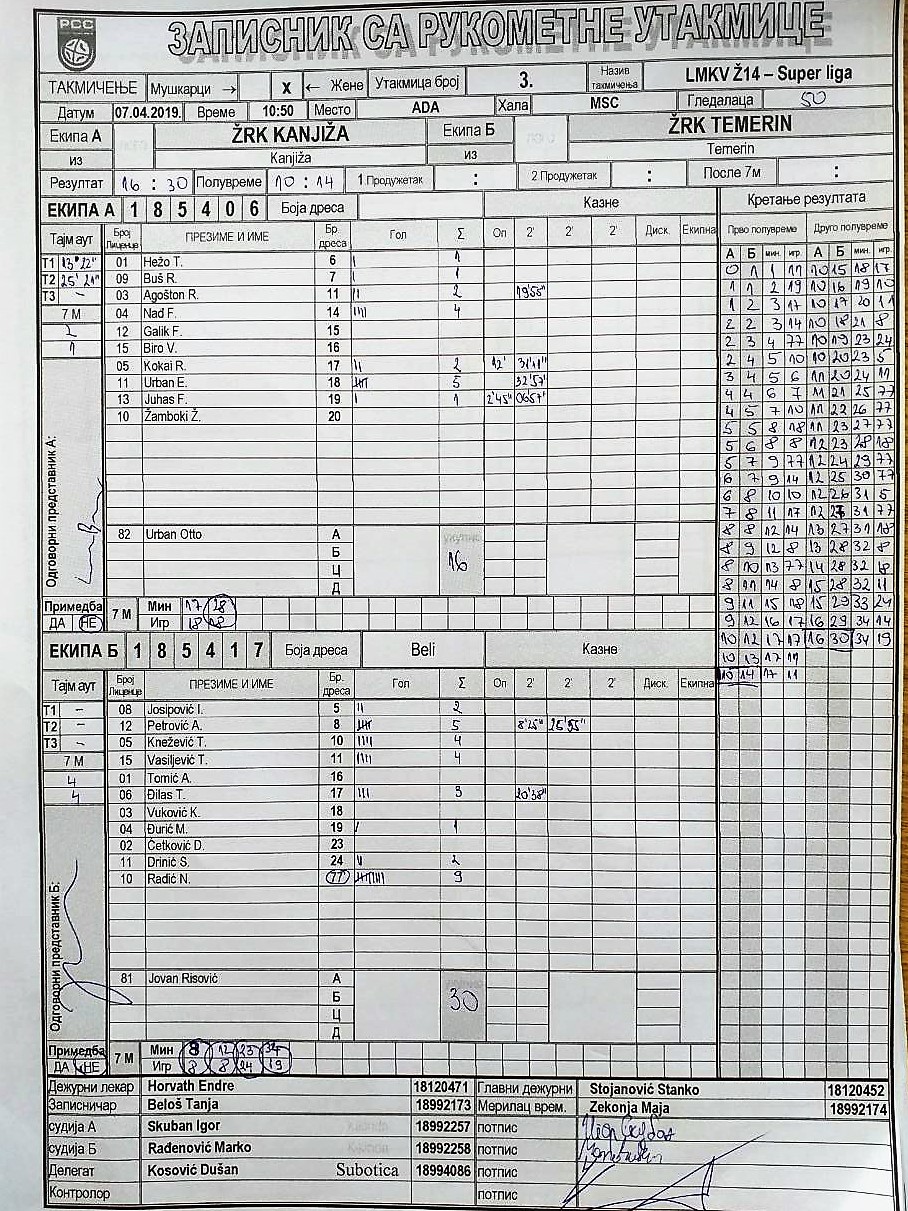 РСС
ЗАПИСНИК СА РУКОМЕТНЕ УТАКМИЦЕ
ТАКМИЧЕЊЕ Мушкарци → X ← Жене Утакмица број 3. Назив такмичења LMKV Ž14 – Super liga
Датум 07.04.2019. Време 10:50 Место ADA Хала MSC Гледалаца 50
Екипа А ŽRK KANJIŽA Екипа Б ŽRK TEMERIN
из Kanjiža из Temerin
Резултат 16 : 30 Полувреме 10 : 14 1.Продужетак : 2.Продужетак : После 7м :
ЕКИПА А 1 8 5 4 0 6 Боја дреса Казне Кретање резултата
Тајм аут Број Лиценце ПРЕЗИМЕ И ИМЕ Бр. дреса Гол Σ Оп 2' 2' 2' Диск. Екипна Прво полувреме Друго полувреме
А Б мин. игр. А Б мин. игр.
T1 13'22" 01 Hežo T. 6 I 1
T2 25'21" 09 Buš R. 7 I 1
T3 – 03 Agošton R. 11 II 2 19'58"
7 М 04 Nađ F. 14 IIII 4
2 12 Galik F. 15
1 15 Biro V. 16
05 Kokai R. 17 II 2 12' 31'11"
11 Urban E. 18 IIIII 5 32'57"
13 Juhas F. 19 I 1 2'45" 06'57"
10 Žamboki Ž. 20
0 1 1 11 10 15 18 17
1 1 2 19 10 16 19 10
1 2 3 17 10 17 20 11
2 2 3 14 10 18 21 8
2 3 4 77 10 19 23 24
2 4 5 10 10 20 23 5
3 4 5 6 11 20 24 11
4 4 6 7 11 21 25 77
4 5 7 10 11 22 26 77
5 5 8 18 11 23 27 77
5 6 8 8 12 23 28 18
5 7 9 77 12 24 29 77
6 7 9 14 12 25 30 77
6 8 10 10 12 26 31 5
7 8 11 17 12 27 31 77
8 8 12 14 13 27 31 18
8 9 12 8 13 28 32 8
8 10 13 77 14 28 32 18
8 11 14 8 15 28 32 11
9 11 15 18 15 29 33 24
9 12 16 17 16 29 34 14
10 12 17 17 16 30 34 19
10 13 17 11
10 14 17 11
Одговорни представник А:
82 Urban Otto А укупно
Б 16
Ц
Д
Примедба 7 М Мин 17 28
ДА НЕ Игр 18 18
ЕКИПА Б 1 8 5 4 1 7 Боја дреса Beli Казне
Тајм аут Број Лиценце ПРЕЗИМЕ И ИМЕ Бр. дреса Гол Σ Оп 2' 2' 2' Диск. Екипна
T1 – 08 Josipović I. 5 II 2
T2 – 12 Petrović A. 8 IIIII 5 8'25" 25'55"
T3 – 05 Knežević T. 10 IIII 4
7 М 15 Vasiljević T. 11 IIII 4
4 01 Tomić A. 16
4 06 Đilas T. 17 III 3 20'38"
03 Vuković K. 18
04 Đurić M. 19 I 1
02 Četković D. 23
11 Drinić S. 24 II 2
10 Radić N. 77 IIIIIIIII 9
Одговорни представник Б:
81 Jovan Risović А
Б 30
Ц
Д
Примедба 7 М Мин 8 12 23 34
ДА НЕ Игр 8 8 24 19
Дежурни лекар Horvath Endre 18120471 Главни дежурни Stojanović Stanko 18120452
Записничар Beloš Tanja 18992173 Мерилац врем. Zekonja Maja 18992174
судија А Skuban Igor 18992257 потпис
судија Б Rađenović Marko 18992258 потпис
Делегат Kosović Dušan Subotica 18994086 потпис
Контролор потпис